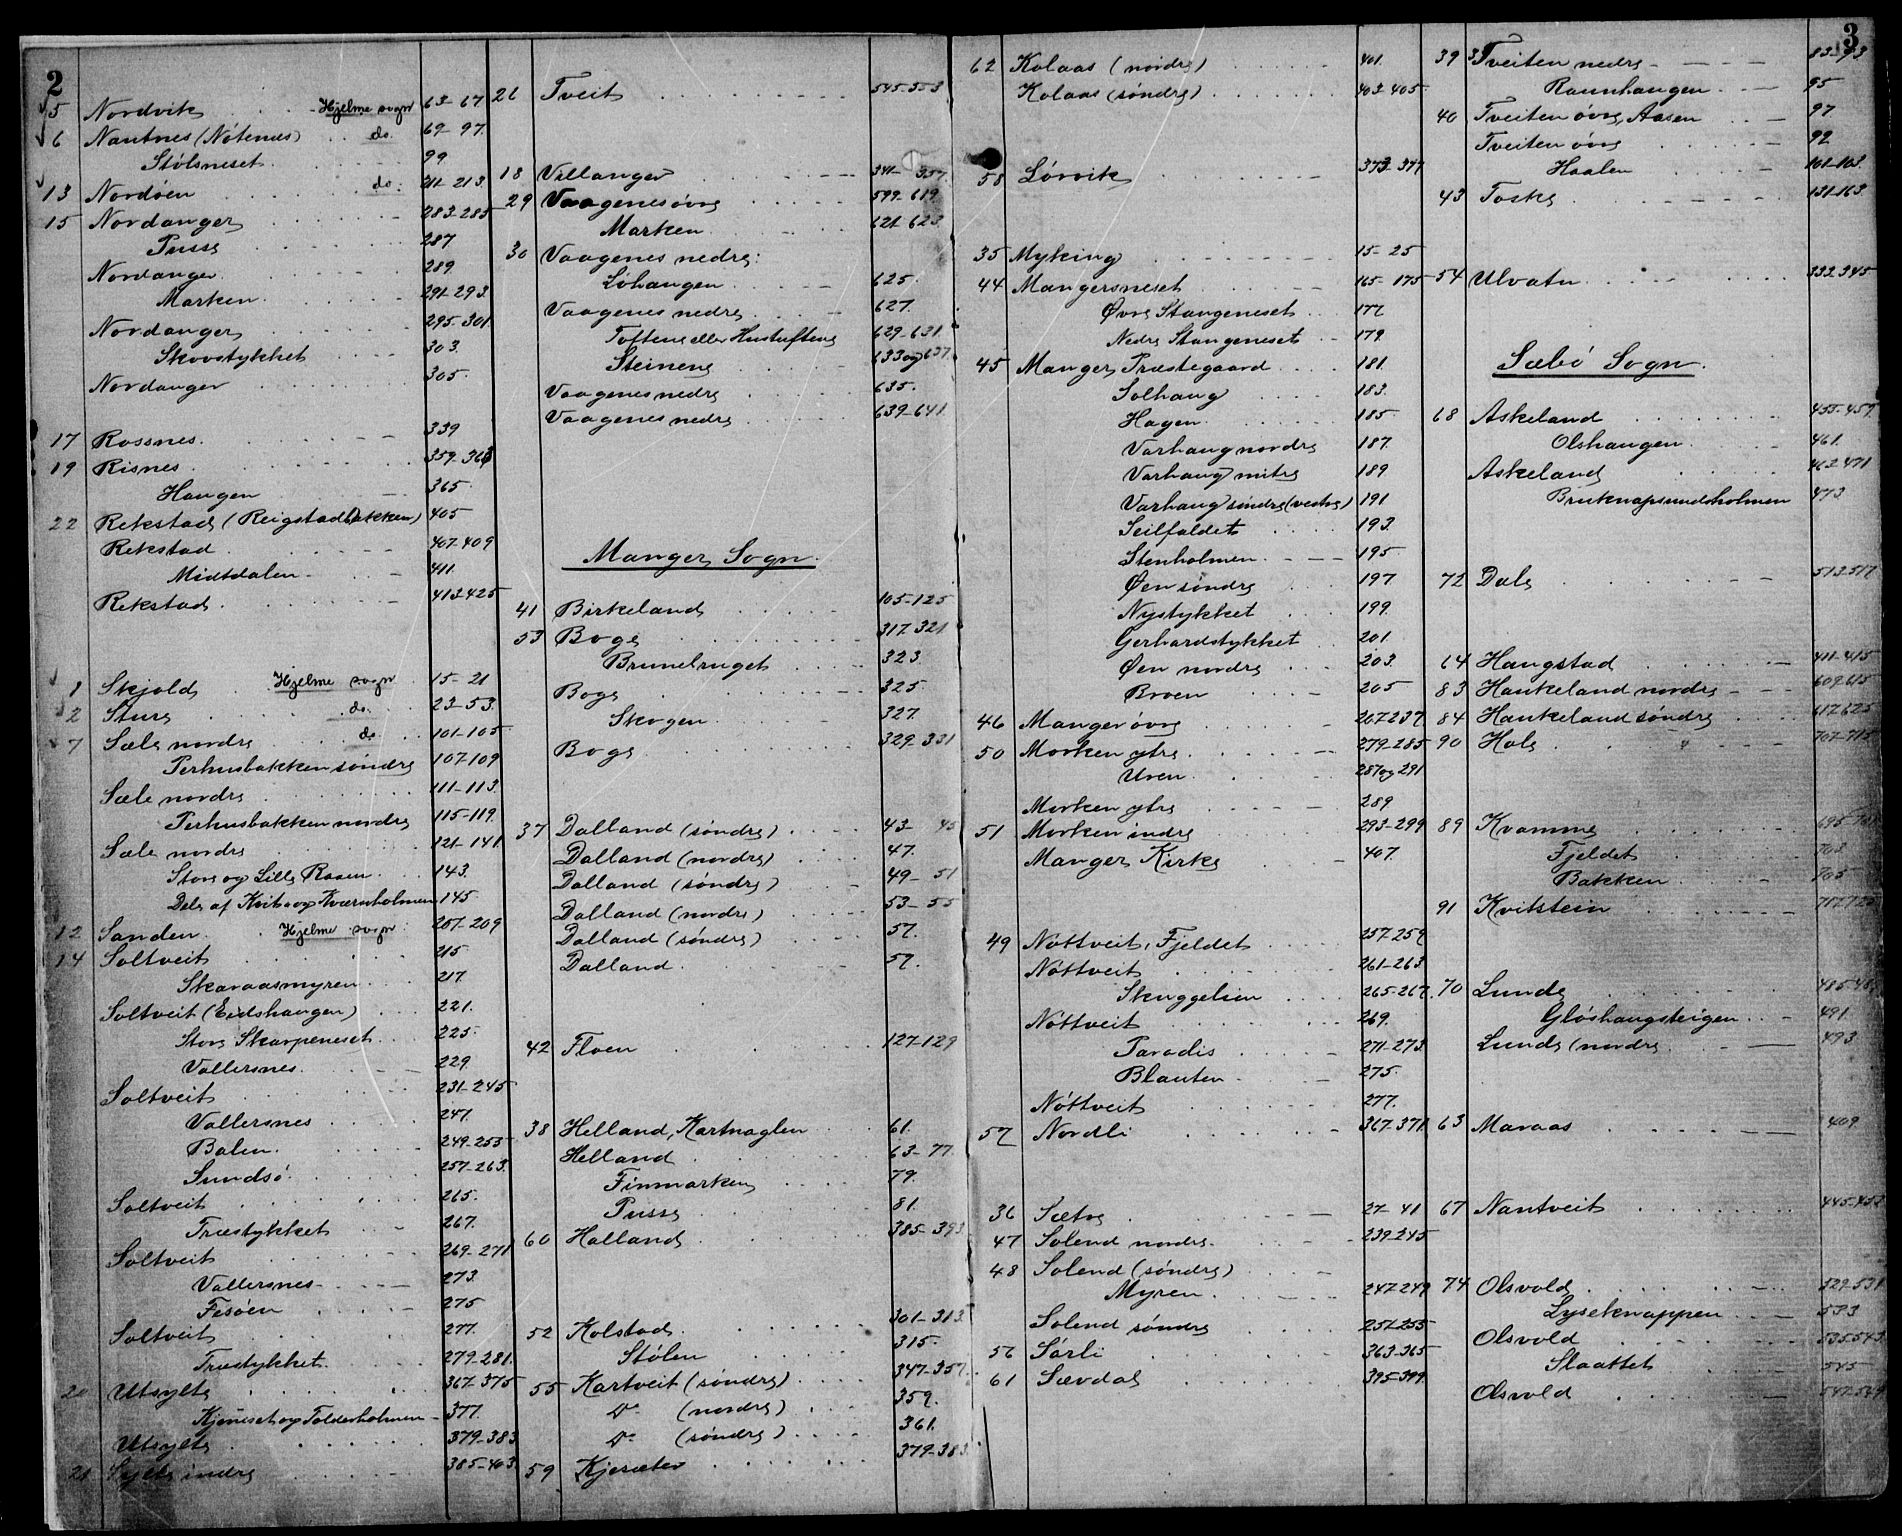 2
5 Nordvik . . Hjelme sogn 63-67
6 Nautnes (Nøtenes) . . do. 69-97.
Stølsneset . . . 99.
13 Nordøen . . . do. 211-213.
15 Nordanger . . . 283-285
Pusse . . . 287
Nordanger . . . 289.
Marken . . . 291-293.
Nordanger . . . 295-301.
Skovstykket . . . 303.
Nordanger . . . 305.
17 Rossnes . . . 339
19 Risnes . . . 359-363
Haugen . . . 365.
22 Rekstad (Reigstadbakken) 405
Rekstad . . . 407-409
Midtdalen . . . 411.
Rekstad . . . 413-425
1 Skjold . Hjelme sogn . 15-21
2 Sture . . . do. . 23-53.
7 Sæle nordre . . do . . 101-105
Perhusbakken søndre 107-109
Sæle nordre . . . 111-113.
Perhusbakken nordre 115-119.
Sæle nordre . . . 121-141.
Store og Lille Raaen . . 143.
Dele af Kvit- og Kværnholmen 145
12 Sanden . Hjelme sogn . 207-209
14 Soltveit . . . 215
Skaraasmyren . . . 217.
Soltveit (Eidshaugen) . . . 221.
Store Skarpeneset . . 225
Vallersnes . . . 229
Soltveit . . . 231-245
Vallersnes . . . 247.
Balen . . . 249-255
Sundsø . . . 257-263.
Soltveit . . . 265.
Træstykket . . . 267.
Soltveit . . . 269-271
Vallersnes . . . 273.
Fesøen . . . 275
Soltveit . . . 277.
Træstykket . . . 279-281.
20 Utsylte . . . 367-375
Kjeneset og Tolderholmen - 377.
Utsylte . . . 379-383
21 Sylte indre . . . 385-403.
26 Tveit . . . 545-553
18 Villanger . . . 341-357.
29 Vaagenes øvre . . . 599-619.
Marken . . . 621-623
30 Vaagenes nedre:
Løhaugen . . . 625.
Vaagenes nedre . . . 627.
Toftene eller Hustuftene 629-631
Steinene . . . 633 og 637.
Vaagenes nedre . . . 635.
Vaagenes nedre . . . 639-641.
Manger Sogn.
41 Birkeland . . . 105-125
53 Boge . . . 317-321
Brunebruget . . . 323.
Boge . . . 325.
Skogen . . . 327.
Boge . . . 329-331
37 Dalland (søndre) . . . 43- 45
Dalland (nordre) . . . 47.
Dalland (søndre) . . . 49-51
Dalland (nordre) . . . 53-55
Dalland (søndre) . . . 57.
Dalland . . . 57.
42 Floen . . . 127-129
38 Helland, Kartnaglen . . . 61.
Helland . . . 63-77.
Finmarken . . . 79.
Pusse . . . 81.
60 Halland . . . 385-393
52 Kolstad . . . 301-313.
Stølen . . . 315.
55 Kartveit (søndre) . . . 347-357.
Do (nordre) . . . 359.
Do (søndre) . . . 361.
59 Kjesæter . . . 379-383.
62 Kolaas (nordre) . . . 401.
Kolaas (søndre) . . . 403-405
58 Lørvik . . . 373-377
35 Myking . . . 15-25
44 Mangersneset . . . 165-175
Øvre Stangeneset . . 177.
Nedre Stangeneset . . 179.
45 Manger Præstegaard . . . 181.
Solhaug . . . 183.
Hagen . . . 185
Varhaug nordre 187.
Varhaug mitre 189
Varhaug søndre (vestre) 191
Seilfaldet . . . 193.
Stenholmen . . . 195
Øen søndre . . . 197
Nystykket . . . 199.
Gerhardstykket . . . 201.
Øen nordre . . . 203.
Broen . . . 205
46 Manger øvre . . . 207-237.
50 Morken ytre . . . 279-285
Uren . . . 287 og 291
Morken ytre . . . 289
51 Morken indre . . . 293-299
Manger Kirke . . . 407.
49 Nøttveit, Fjeldet . . . 257-259
Nøttveit . . . 261-263
Skuggelien . . . 265-267.
Nøttveit . . . 269.
Paradis . . . 271-273.
Blauten . . . 275.
Nøttveit . . . 277.
57 Nordli . . . 367-371
36 Sætre . . . 27-41
47 Solend nordre . . . 239-245
48 Solend (søndre) . . .
Myren . . . 247-249
Solend søndre . . . 251-255
56 Sørli . . . 363-365
61 Sævdal . . . 395-399.
3
39 Tveiten nedre . . . 83-93
Raunhaugen . . . 95
40 Tveiten øvre, Aasen . . . 97
Tveiten øvre . . . 92
Haalen . . . 101-103.
43 Toske . . . 131-163
54 Ulvatn . . . 333-345
Sæbø Sogn.
68 Askeland . . . 455-459.
Olshaugen . . . 461.
Askeland . . . 463-471
Bruknapsundsholmen 473
72 Dale . . . 513-517
64 Haugstad . . . 411-415
83 Haukeland nordre . . . 609-615
84 Haukeland søndre . . . 617-625
90 Hole . . . 707-715
89 Kvamme . . . 695-701
Fjeldet . . . 703
Bakken . . . 705
91 Kvitstein . . .
70 Lunde . . .
Gløshaugsteigen . . . 491.
Lunde (nordre . . . 493
63 Maraas . . . 409
67 Nautveit . . . 445-453
74 Olsvold . . . 529-531
Lyseknappen . . . 533
Olsvold . . . 535-543
Slaattet . . . 545
Olsvold . . . 547-569